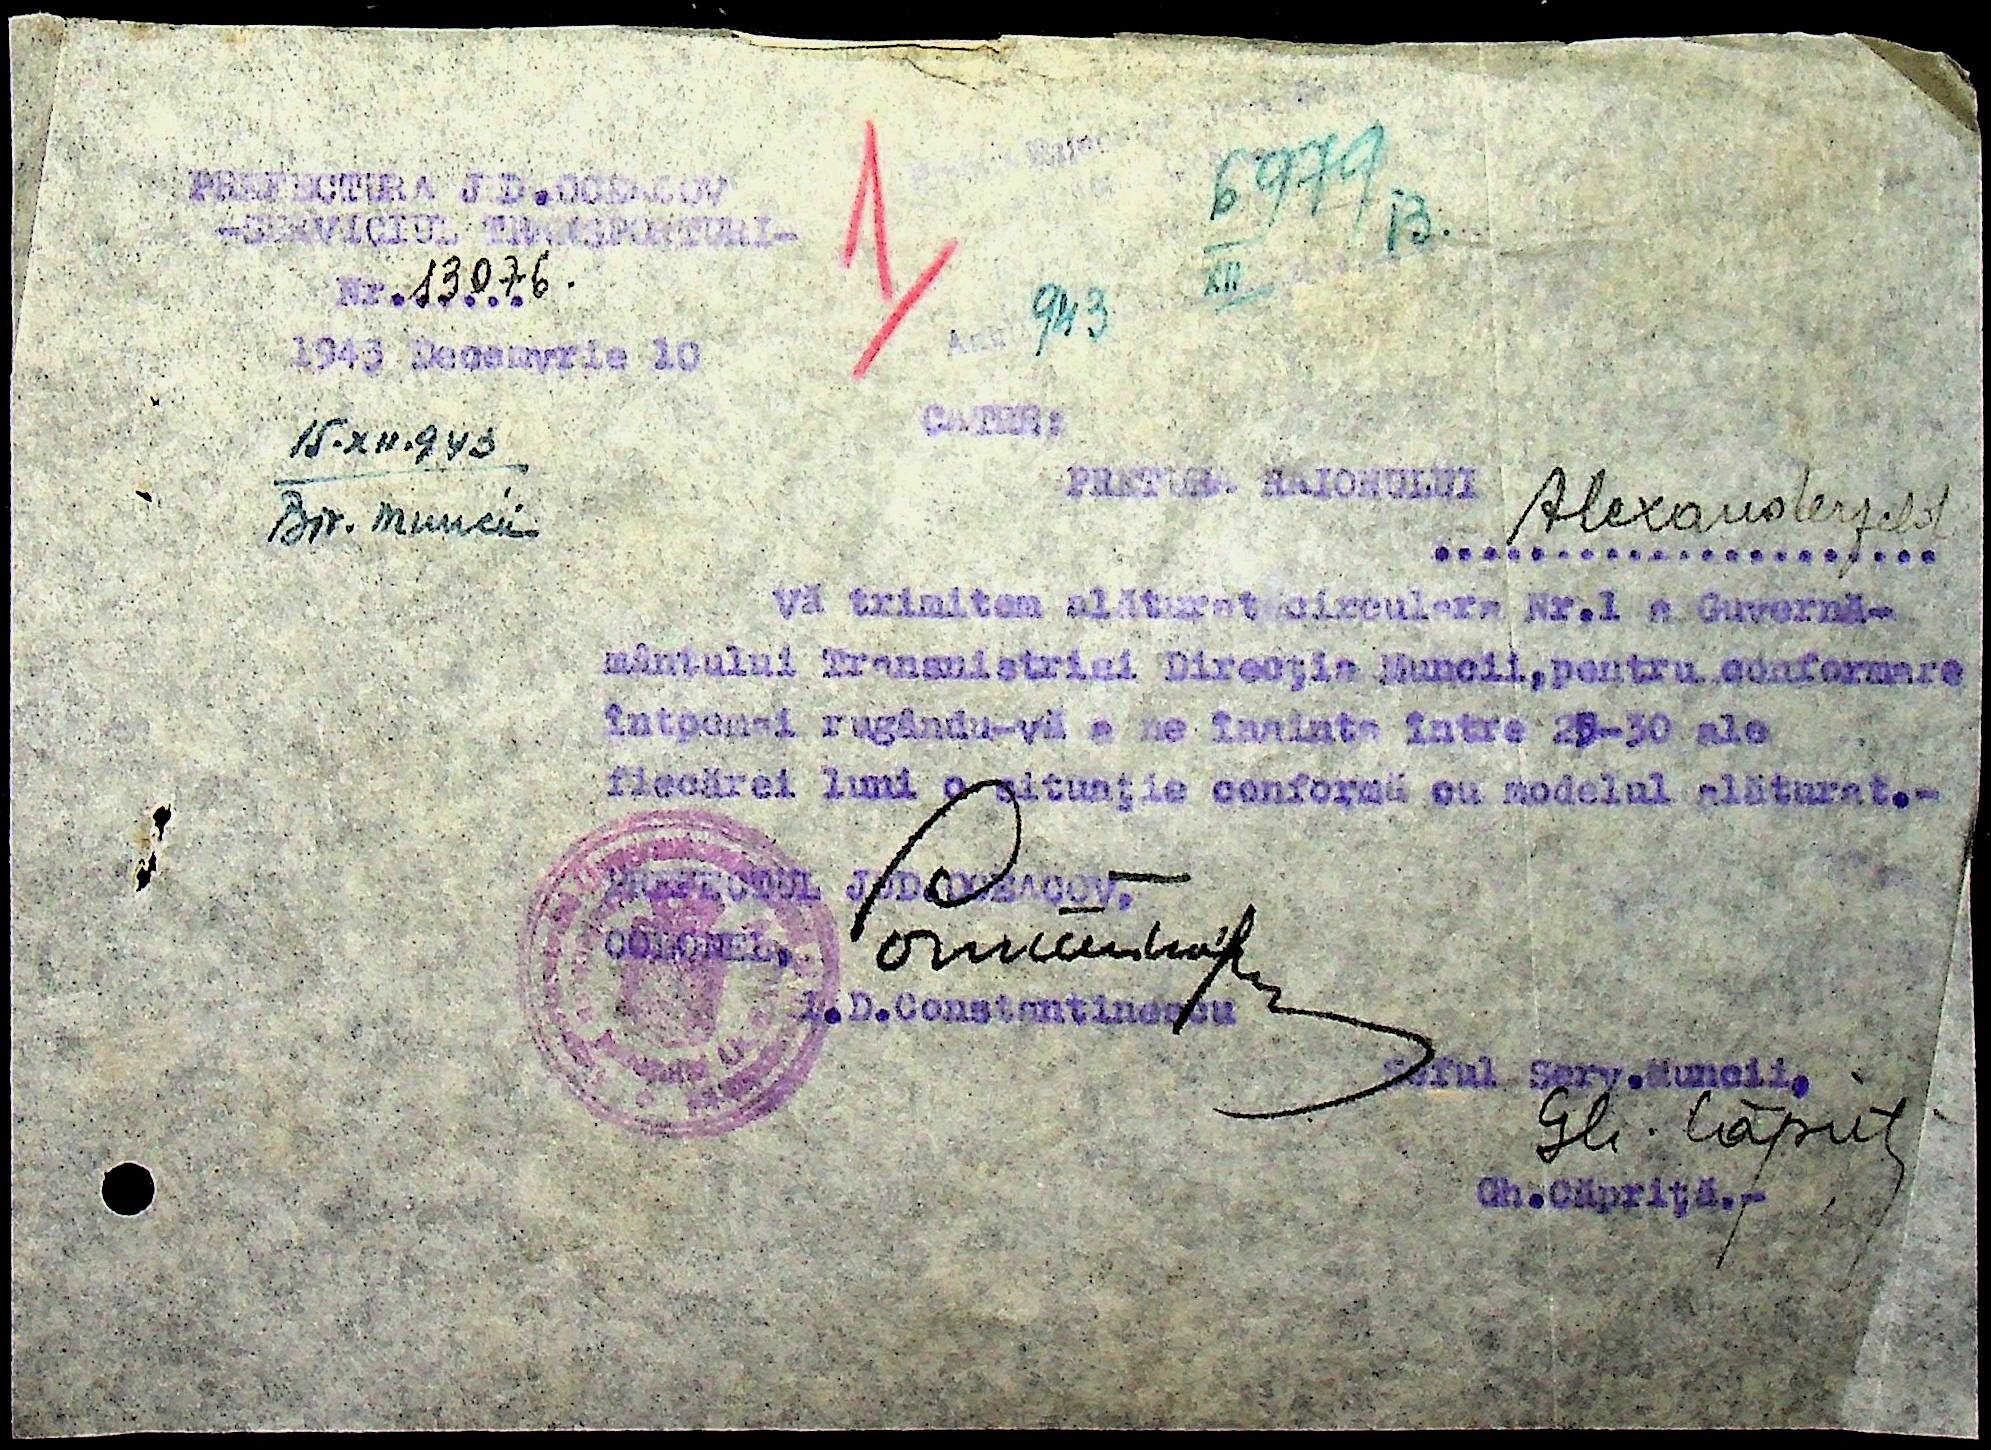 PREFECTURA JUD.OCEACOV
-SERVICIUL TRANSPORTURI-
Nr.13076.
1943 Decemvrie 10
1
6979 B.
XII
Anul 943
15.XII.943
Bir. Muncii
CATRE:
PRETURA RAIONULUI Alexanderfeld
vă trimitem alăturat circulara Nr.1 a Guvernă-
mântului Transnistriei Direcţia Muncii,pentru conformare
întocmai rugându-vă a ne înainta între 25-30 ale
fiecărei luni o situaţie conformă cu modelul alăturat.-
PREFECTUL JUD.OCEACOV,
COLONEL,
I.D.Constantinescu
Seful Serv.Muncii,
Gh. Căpriţ
Gh.Căpriţă.-